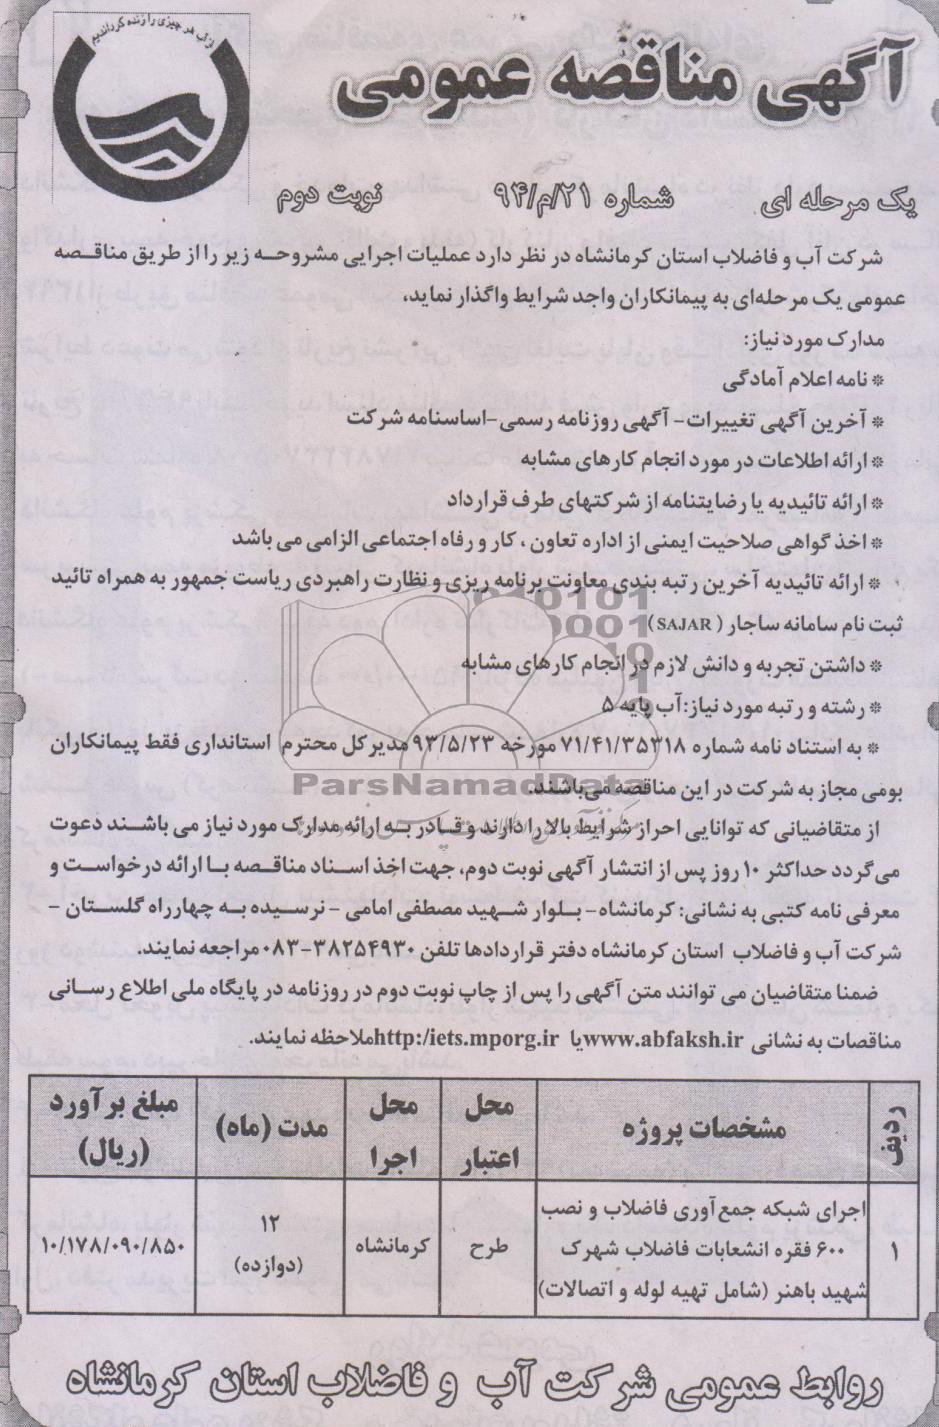 از آب هر چیزی را زنده گرداندیم
آگهی مناقصه عمومی
یک مرحله ای شماره ۲۱/م/۹۴ نوبت دوم
شرکت آب و فاضلاب استان کرمانشاه در نظر دارد عملیات اجرایی مشروحه زیر را از طریق مناقصه
عمومی یک مرحله‌ای به پیمانکاران واجد شرایط واگذار نماید،
مدارک مورد نیاز:
* نامه اعلام آمادگی
* آخرین آگهی تغییرات- آگهی روزنامه رسمی-اساسنامه شرکت
* ارائه اطلاعات در مورد انجام کارهای مشابه
* ارائه تائیدیه یا رضایتنامه از شرکتهای طرف قرارداد
* اخذ گواهی صلاحیت ایمنی از اداره تعاون ، کار و رفاه اجتماعی الزامی می باشد
* ارائه تائیدیه آخرین رتبه بندی معاونت برنامه ریزی و نظارت راهبردی ریاست جمهور به همراه تائید
ثبت نام سامانه ساجار ( SAJAR)
* داشتن تجربه و دانش لازم در انجام کارهای مشابه
* رشته و رتبه مورد نیاز:آب پایه ۵
* به استناد نامه شماره ۷۱/۴۱/۳۵۳۱۸ مورخه ۹۳/۵/۲۳ مدیرکل محترم استانداری فقط پیمانکاران
بومی مجاز به شرکت در این مناقصه می‌باشند.
ParsNamadData
از متقاضیانی که توانایی احراز شرایط بالا را دارند و قادر به ارائه مدارک مورد نیاز می باشند دعوت
می‌گردد حداکثر ۱۰ روز پس از انتشار آگهی نوبت دوم، جهت اخذ اسناد مناقصه با ارائه درخواست و
معرفی نامه کتبی به نشانی: کرمانشاه- بلوار شهید مصطفی امامی - نرسیده به چهارراه گلستان -
شرکت آب و فاضلاب استان کرمانشاه دفتر قراردادها تلفن ۳۸۲۵۴۹۳۰-۰۸۳ مراجعه نمایند.
ضمنا متقاضیان می توانند متن آگهی را پس از چاپ نوبت دوم در روزنامه در پایگاه ملی اطلاع رسانی
مناقصات به نشانی www.abfaksh.ir یا http:/iets.mporg.ir ملاحظه نمایند.
ردیف مشخصات پروژه محل اعتبار محل اجرا مدت (ماه) مبلغ برآورد (ریال)
۱ اجرای شبکه جمع‌آوری فاضلاب و نصب ۶۰۰ فقره انشعابات فاضلاب شهرک شهید باهنر (شامل تهیه لوله و اتصالات) طرح کرمانشاه ۱۲ (دوازده) ۱۰/۱۷۸/۰۹۰/۸۵۰
روابط عمومی شرکت آب و فاضلاب استان کرمانشاه